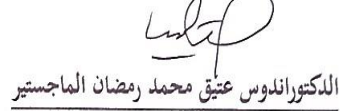 الدكتوراندوس عتيق محمد رمضان الماجستير